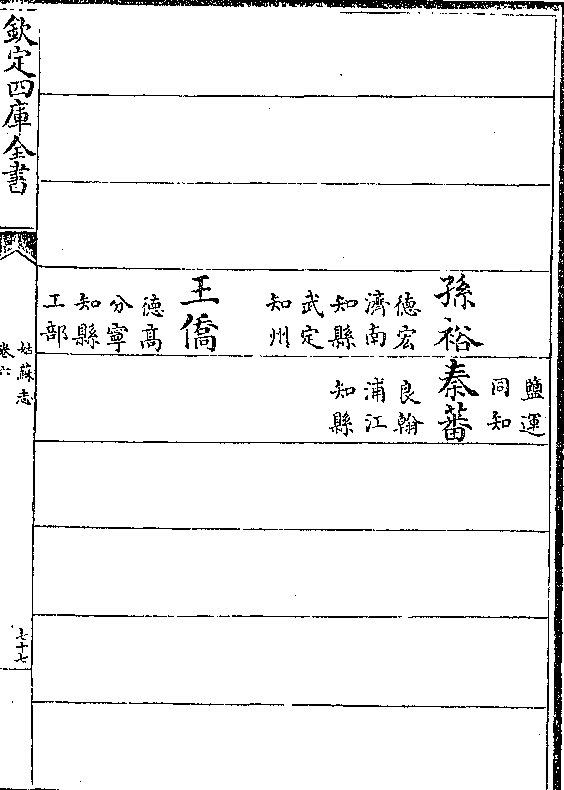 孫裕
德宏
濟南
知縣
武定
知州
王僑
德髙
分寧
知縣
工部
鹽運
同知
秦蕃
良翰
浦江
知縣
欽定四庫全書
姑蘇志
卷六
七十七